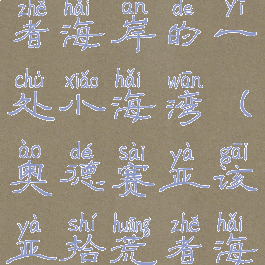 zhě hǎi àn de yī
者海岸的一
chù xiǎo hǎi wān
处小海湾（
ào dé sài yà gāi
奥德赛亚该
yà shí huāng zhě hǎi
亚拾荒者海